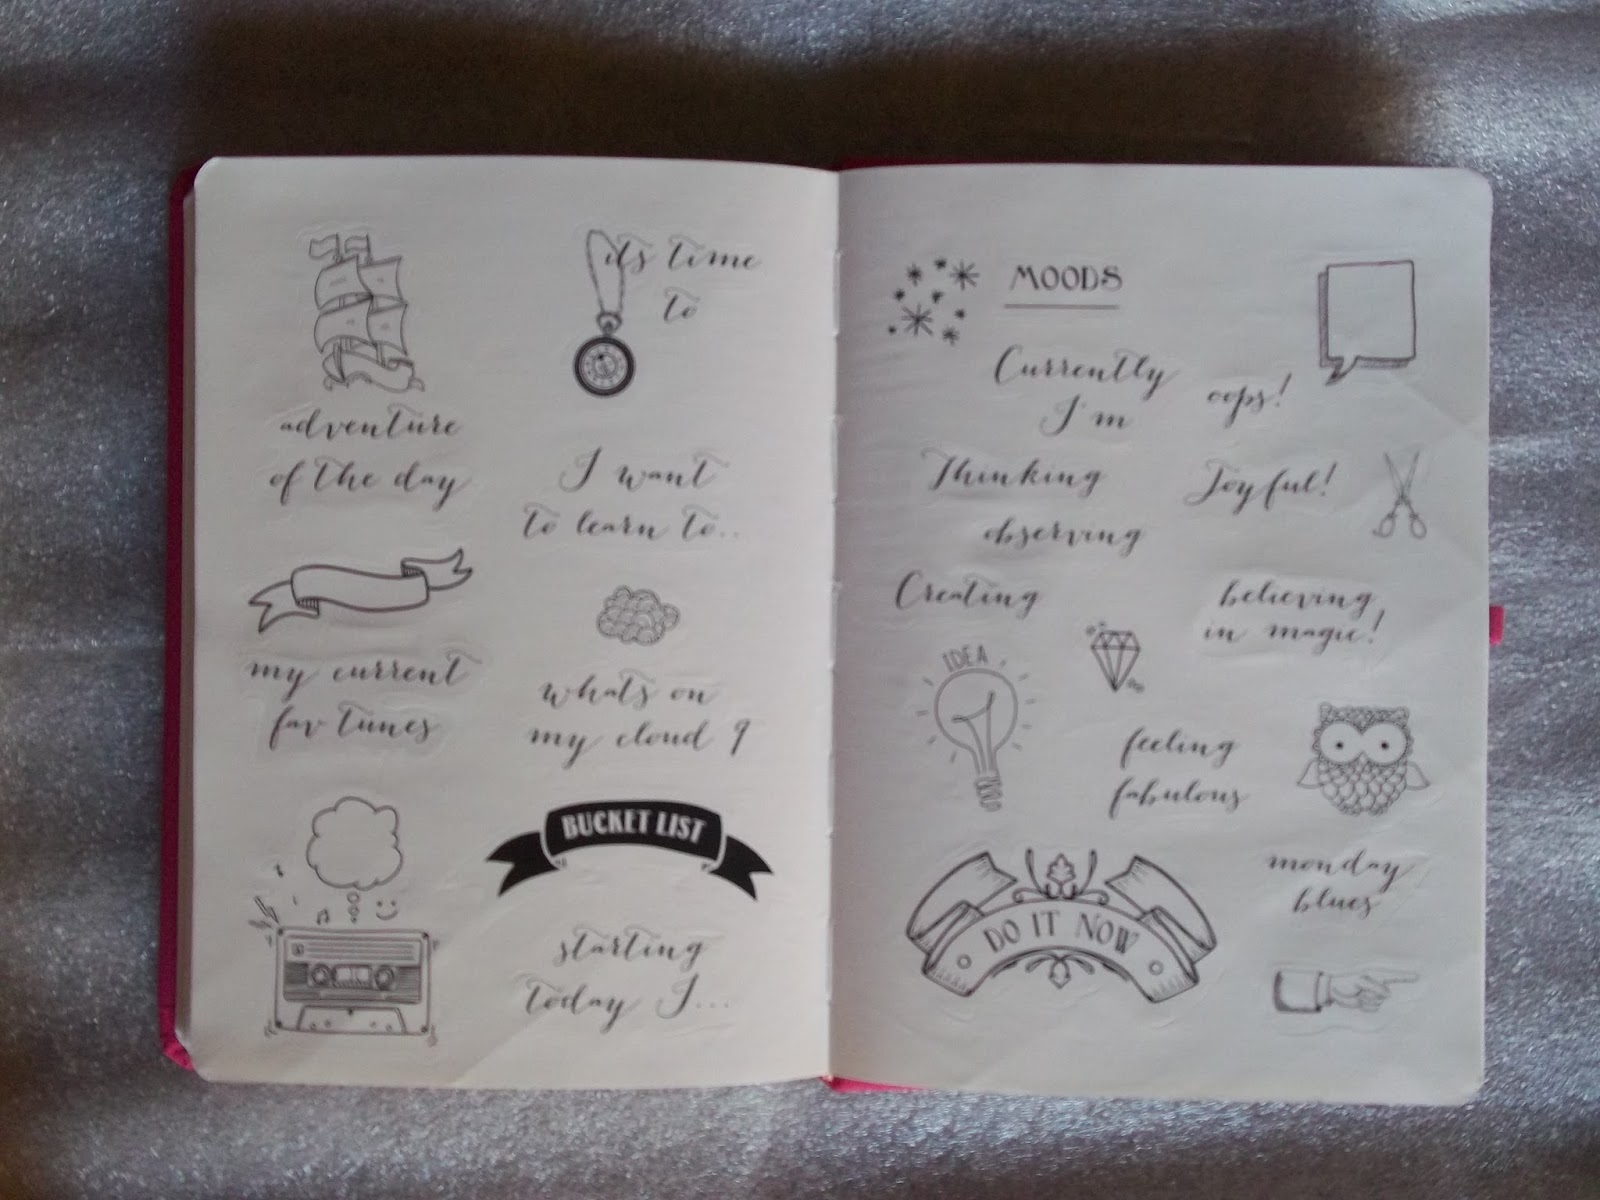 its time
to
adventure
of the day
I want
to learn to..
my current
fav tunes
whats on
my cloud 9
BUCKET LIST
starting
today I...
MOODS
Currently
I'm
oops!
Thinking
Joyful!
observing
Creating
believing
in magic!
IDEA
feeling
fabulous
monday
blues
DO IT NOW